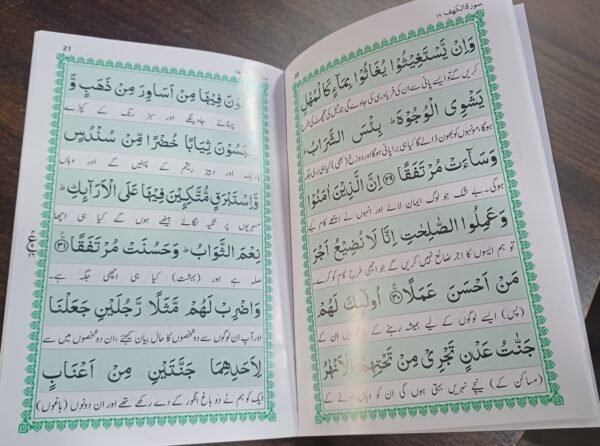 سورة الكهف ١٨
وَاِنْ يَّسْتَغِيْثُوْا يُغَاثُوْا بِمَآءٍ كَالْمُهْلِ
کریں گے تو ایسے پانی سے ان کی فریاد رسی کی جاوے گی جو تیل کی تلچھٹ کی طرح
يَشْوِى الْوُجُوْهَ ؕ بِئْسَ الشَّرَابُ ؕ
ہوگا، مونہوں کو بھون ڈالے گا کیا ہی برا پانی ہوگا اور دوزخ (بھی) کیا ہی بری جگہ
وَسَآءَتْ مُرْتَفَقًا ﴿۲۹﴾ اِنَّ الَّذِيْنَ اٰمَنُوْا
ہوگی۔ بے شک جو لوگ ایمان لائے اور انہوں نے اچھے کام کیے
وَعَمِلُوا الصّٰلِحٰتِ اِنَّا لَا نُضِيْعُ اَجْرَ
تو ہم ایسوں کا اجر ضائع نہیں کریں گے جو اچھی طرح کام کو کرے۔
مَنْ اَحْسَنَ عَمَلًا ﴿۳۰﴾ اُولٰٓئِكَ لَهُمْ
(پس) ایسے لوگوں کے لیے ہمیشہ رہنے کے باغ ہیں ان کے
جَنّٰتُ عَدْنٍ تَجْرِىْ مِنْ تَحْتِهِمُ الْاَنْهٰرُ
(مساکن کے) نیچے نہریں بہتی ہوں گی ان کو وہاں سونے کے
21
يُحَلَّوْنَ فِيْهَا مِنْ اَسَاوِرَ مِنْ ذَهَبٍ وَّ
پہنائے جاویں گے اور سبز رنگ کے کپڑے
يَلْبَسُوْنَ ثِيَابًا خُضْرًا مِّنْ سُنْدُسٍ
باریک اور دبیز ریشم کے پہنیں گے اور وہاں
وَّاِسْتَبْرَقٍ مُّتَّكِـِٕيْنَ فِيْهَا عَلَى الْاَرَآئِكِ ؕ
مسہریوں پر تکیہ لگائے بیٹھے ہوں گے کیا ہی اچھا
نِعْمَ الثَّوَابُ ؕ وَحَسُنَتْ مُرْتَفَقًا ﴿۳۱﴾
صلہ ہے اور (بہشت) کیا ہی اچھی جگہ ہے۔
وَاضْرِبْ لَهُمْ مَّثَلًا رَّجُلَيْنِ جَعَلْنَا
اور آپ ان لوگوں سے دو شخصوں کا حال بیان کیجئے، ان دو شخصوں میں سے
لِاَحَدِهِمَا جَنَّتَيْنِ مِنْ اَعْنَابٍ
ایک کو ہم نے دو باغ انگور کے دے رکھے تھے اور ان دونوں (باغوں)